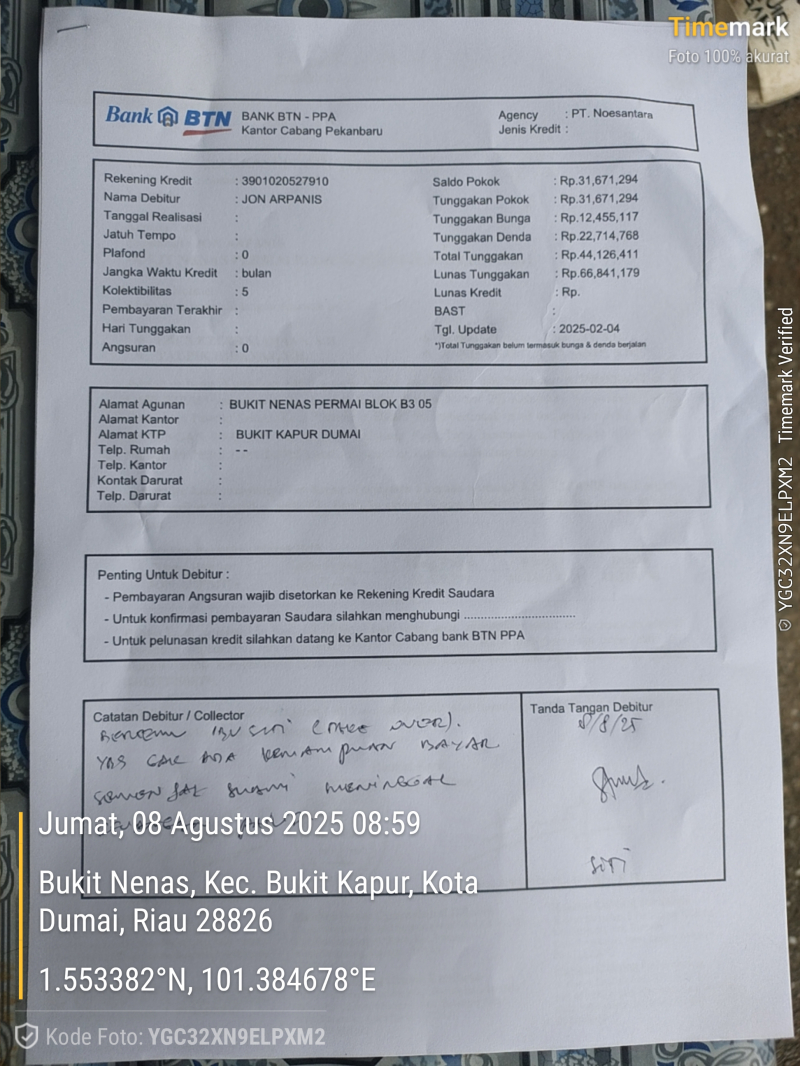 Timemark
Foto 100% akurat
Bank BTN BANK BTN - PPA
Kantor Cabang Pekanbaru
Agency : PT. Noesantara
Jenis Kredit :
Rekening Kredit : 3901020527910
Nama Debitur : JON ARPANIS
Tanggal Realisasi :
Jatuh Tempo :
Plafond : 0
Jangka Waktu Kredit : bulan
Kolektibilitas : 5
Pembayaran Terakhir :
Hari Tunggakan :
Angsuran : 0
Saldo Pokok : Rp.31,671,294
Tunggakan Pokok : Rp.31,671,294
Tunggakan Bunga : Rp.12,455,117
Tunggakan Denda : Rp.22,714,768
Total Tunggakan : Rp.44,126,411
Lunas Tunggakan : Rp.66,841,179
Lunas Kredit : Rp.
BAST :
Tgl. Update : 2025-02-04
*)Total Tunggakan belum termasuk bunga & denda berjalan
Alamat Agunan : BUKIT NENAS PERMAI BLOK B3 05
Alamat Kantor :
Alamat KTP : BUKIT KAPUR DUMAI
Telp. Rumah : - -
Telp. Kantor :
Kontak Darurat :
Telp. Darurat :
Penting Untuk Debitur :
- Pembayaran Angsuran wajib disetorkan ke Rekening Kredit Saudara
- Untuk konfirmasi pembayaran Saudara silahkan menghubungi ................................
- Untuk pelunasan kredit silahkan datang ke Kantor Cabang bank BTN PPA
Catatan Debitur / Collector
BERTEMU IBU SITI (TAKE OVER).
ADA KEMAMPUAN BAYAR
SEMENJAK SUAMI MENINGGAL
Tanda Tangan Debitur
8/8/25
SITI
Jumat, 08 Agustus 2025 08:59
Bukit Nenas, Kec. Bukit Kapur, Kota
Dumai, Riau 28826
1.553382°N, 101.384678°E
Kode Foto: YGC32XN9ELPXM2
YGC32XN9ELPXM2 Timemark Verified